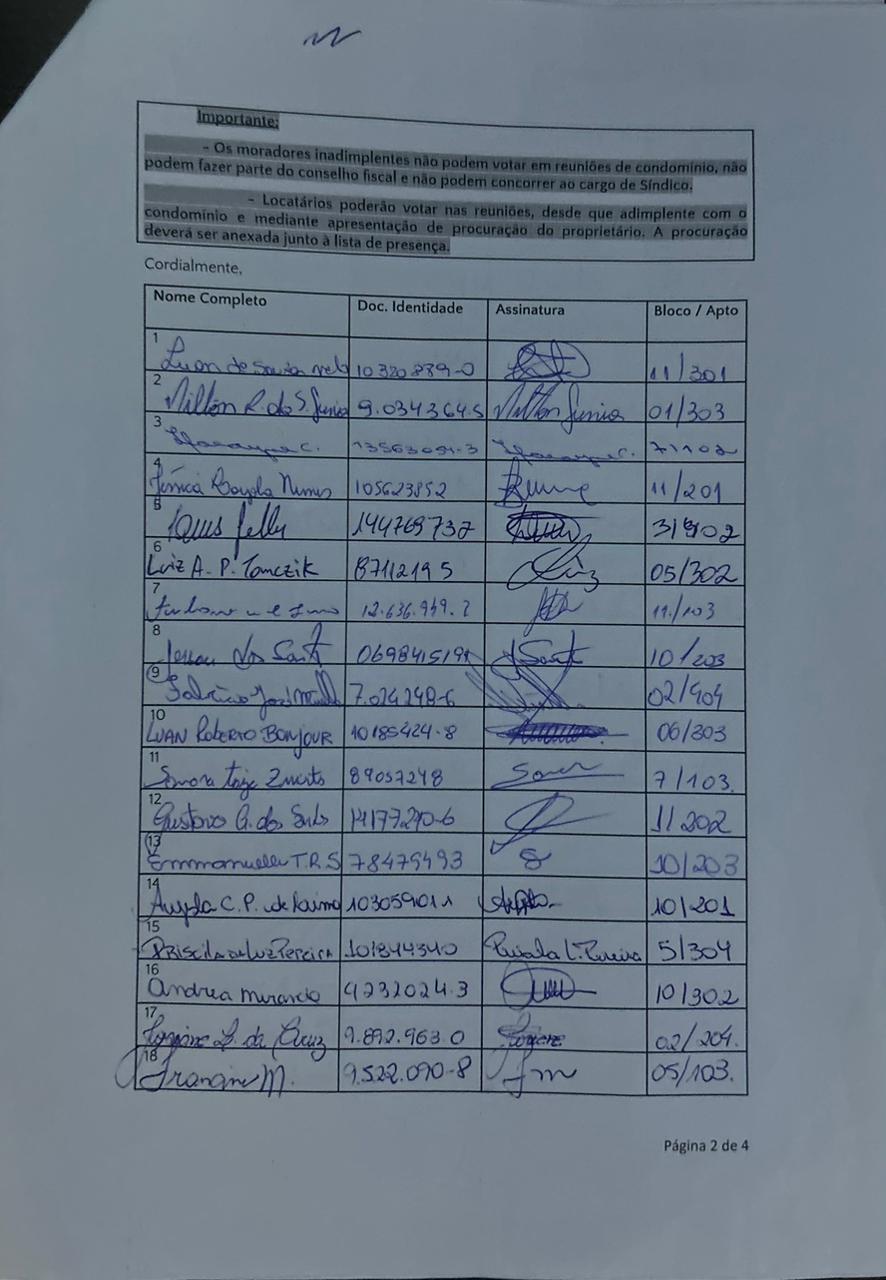 Importante:
- Os moradores inadimplentes não podem votar em reuniões de condomínio, não
podem fazer parte do conselho fiscal e não podem concorrer ao cargo de Síndico.
- Locatários poderão votar nas reuniões, desde que adimplente com o
condomínio e mediante apresentação de procuração do proprietário. A procuração
deverá ser anexada junto à lista de presença.
Cordialmente,
Nome Completo Doc. Identidade Assinatura Bloco / Apto
1 Luan de Souza 10320889-0 11/301
2 Nillton R. dos S. Junior 9.034364-5 Nillton Junior 01/303
3 13563091-3 7/102
4 Jéssica Nunes 105623852 11/201
5 144769737
6 Luiz A. P. Tomczik 87112195 Luiz 05/302
7 12.636.949.2 11/103
8 dos Santos 10/203
9 7.024.248-6 02/404
10 LUAN ROBERTO BONJOUR 10185424-8 06/303
11 89057248 7/103.
12 Gustavo G. dos 1/202
13 Emmanuelle T.R.S 78479493 10/203
14 C.P. de 103059011 10/201
15 PRISCILA DA LUZ PEREIRA 101844340 Priscila L. Pereira 5/304
16 Andrea 9232024-3 10/302
17 da Cruz 9.892.963.0 02/204.
18 Franciane M. 9.522.090-8 05/103.
Página 2 de 4